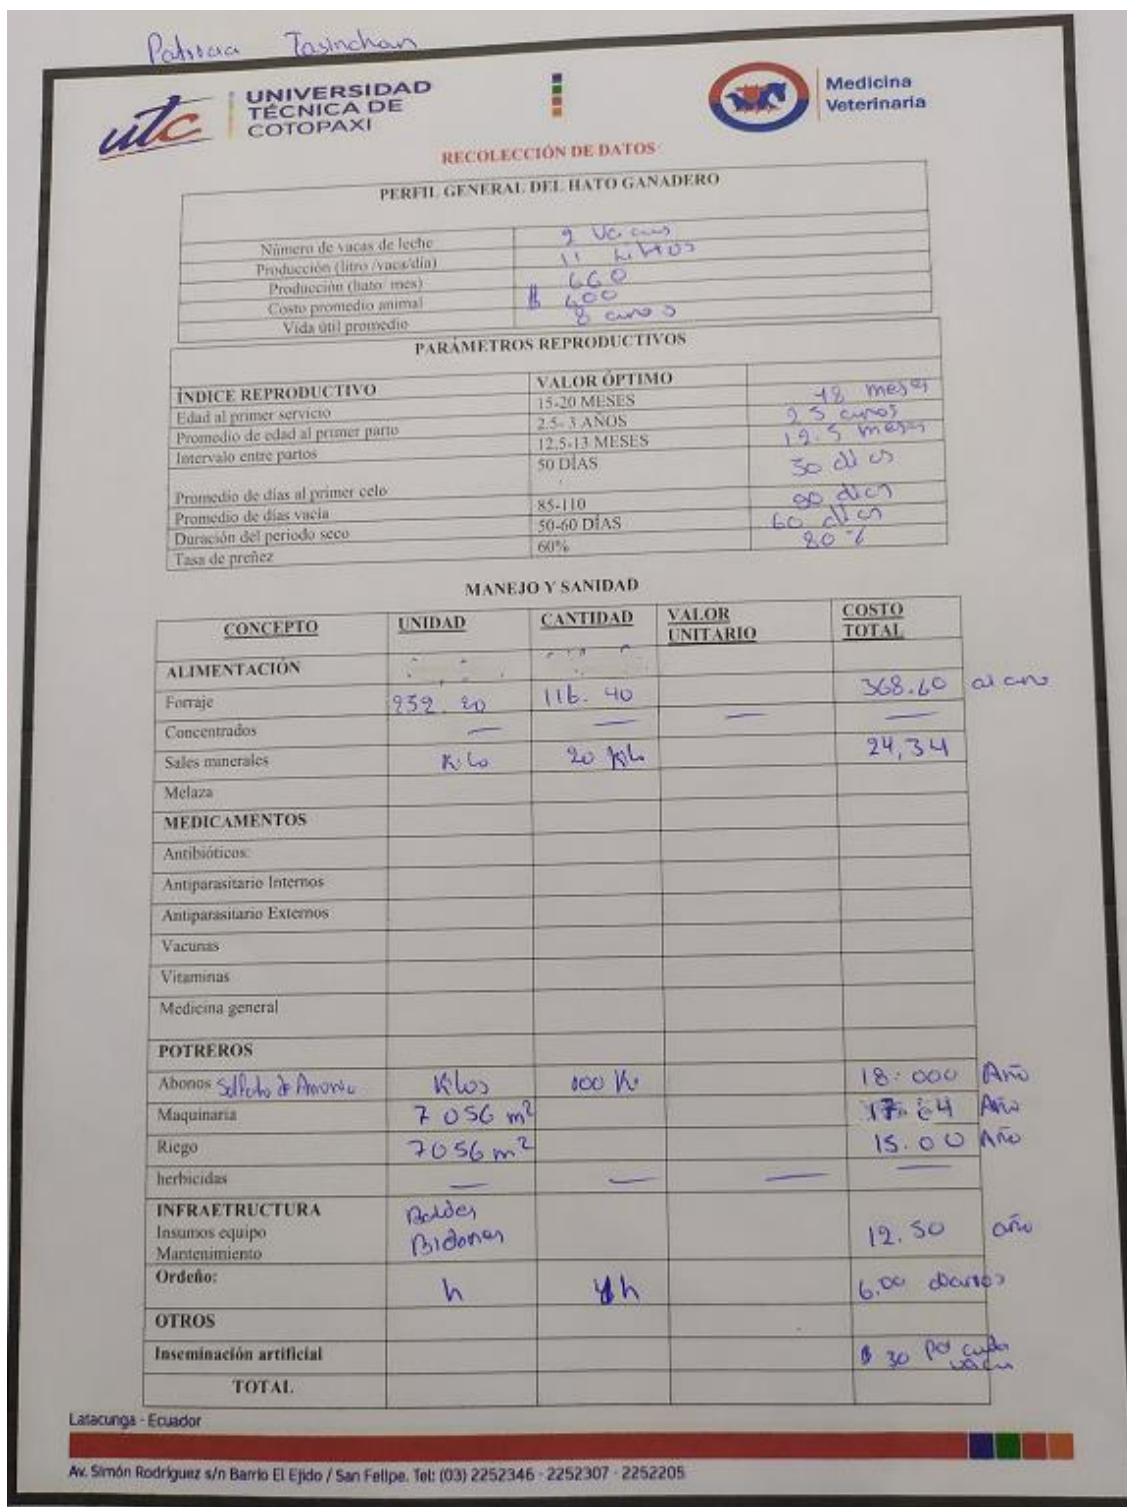 Patricia Tasinchan
utc UNIVERSIDAD TÉCNICA DE COTOPAXI
Medicina Veterinaria
RECOLECCIÓN DE DATOS
PERFIL GENERAL DEL HATO GANADERO
Número de vacas de leche 2 Vacas
Producción (litro /vaca/día) 11 Litros
Producción (hato/ mes) 660
Costo promedio animal $ 600
Vida útil promedio 8 años
PARÁMETROS REPRODUCTIVOS
ÍNDICE REPRODUCTIVO VALOR ÓPTIMO
Edad al primer servicio 15-20 MESES 18 meses
Promedio de edad al primer parto 2.5- 3 AÑOS 2 5 años
Intervalo entre partos 12.5-13 MESES 12.5 meses
Promedio de días al primer celo 50 DÍAS 50 dias
Promedio de días vacía 85-110 90 dias
Duración del periodo seco 50-60 DÍAS 60 dias
Tasa de preñez 60% 80 %
MANEJO Y SANIDAD
CONCEPTO UNIDAD CANTIDAD VALOR UNITARIO COSTO TOTAL
ALIMENTACIÓN
Forraje 252. 20 116. 40 368.60 al año
Concentrados — — — —
Sales minerales Kilo 20 Kilo 24,34
Melaza
MEDICAMENTOS
Antibióticos:
Antiparasitario Internos
Antiparasitario Externos
Vacunas
Vitaminas
Medicina general
POTREROS
Abonos Sulfato de Amonio Kilos 100 K 18.000 Año
Maquinaria 7 056 m² 17.64 Año
Riego 7056 m² 15.00 Año
herbicidas — — — —
INFRAETRUCTURA Baldes
Insumos equipo Bidones 12.50 año
Mantenimiento
Ordeño: h h 6,00 diarios
OTROS
Inseminación artificial $ 30 por cada vaca
TOTAL
Latacunga - Ecuador
Av. Simón Rodríguez s/n Barrio El Ejido / San Felipe. Tel: (03) 2252346 - 2252307 - 2252205